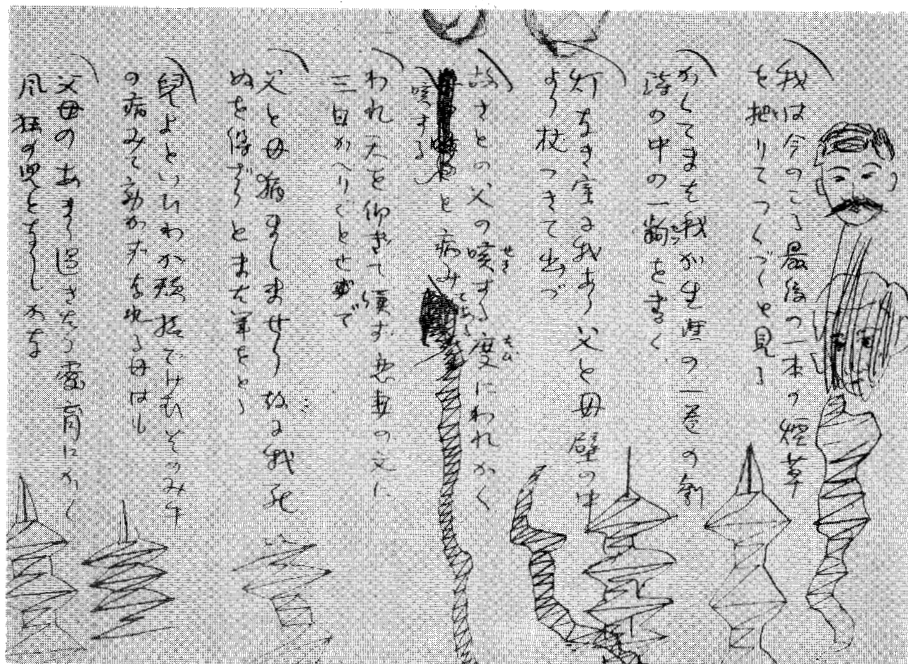 我は今のこる最後の一本の煙草
を把りてつくづくと見る
かくてまた我が生涯の一巻の劇
詩の中の一齣とまく
灯なき室に我あり父と母壁の中
より杖つきて出づ
故さとの父の咳する度にわれかく
咳する と病み
われ天を仰ぎて嘆ず恋妻の文に
三日かへりごとせで
父と母猶ましませり故に我死
ぬを得ざりとまた筆をとる
児よといひわが
の病みて な母は
父母のあまり過ぎたる愛育にかく
風狂の児となりしかな